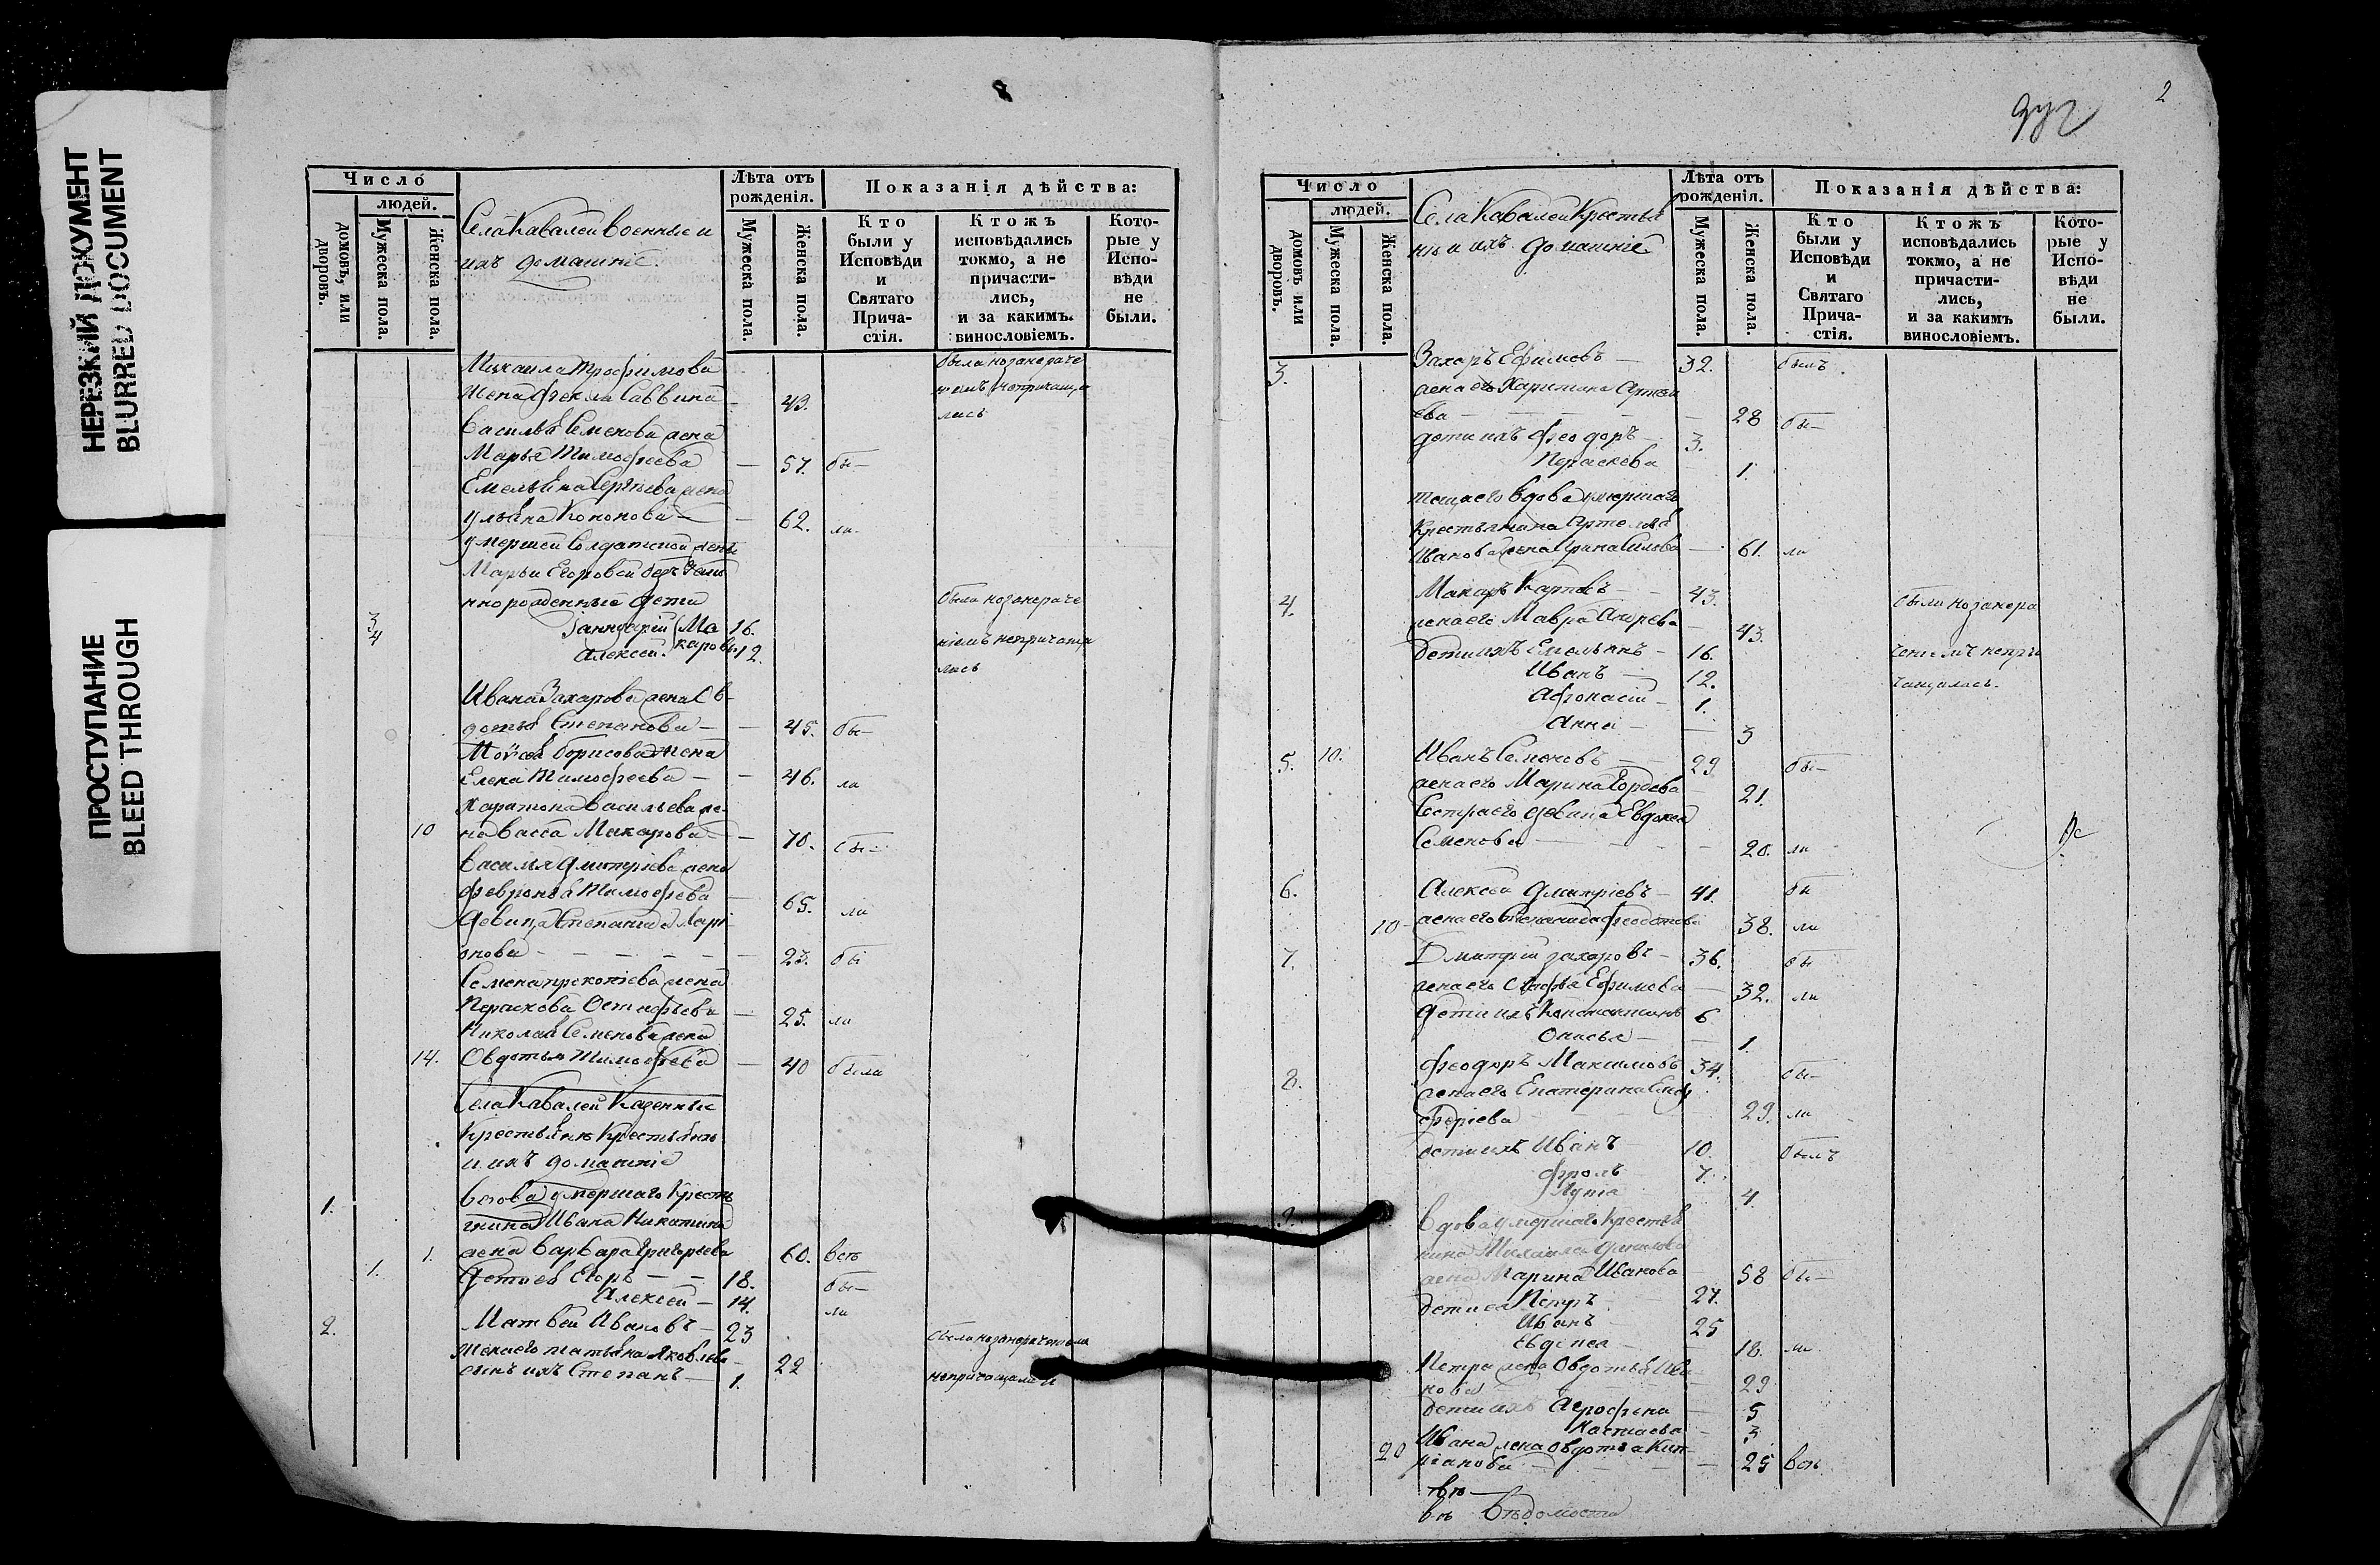 НЕРЕЗКИЙ ДОКУМЕНТ
BLURRED DOCUMENT
ПРОСТУПАНИЕ
BLEED THROUGH
Число
людей.
домовъ, или дворовъ.
Мужеска пола.
Женска пола.
Села Кавалей военные и
ихъ домашніе.
Лѣта отъ рожденія.
Мужеска пола.
Женска пола.
Показанія дѣйства:
Кто были у Исповѣди и Святаго Причастія.
Ктожъ исповѣдались токмо, а не причастились, и за какимъ винословіемъ.
Которые у Исповѣди не были.
Михаила Трофимова
жена Фекла Саввина — 43.
Василья Семенова жена
Марья Тимофеева — 57. бы—
Емельяна Сергѣева жена
Ульяна Кононова — 62. ли
умершей солдатской жены
Марьи Егоровой
рожденные дети
3 Іаннуарій Ма 16.
4 Алексей. каровы 12.
Ивана Захарова жена Ов
дотья Степанова — 45. бы—
Моѵсея Борисова жена
Елена Тимофеева — 46. ли
Харитона Васильева же
10 на Васса Макарова — 70. бы—
Василья Дмитріева жена
Февронья Тимофеева 65. ли
Девица Степанида Лари
онова — 23. бы
Семена Прокопіева жена
Пераскова Остафьева — 25. ли
Николая Семенова жена
14. Овдотья Тимофеева — 40 была
Села Кавалей Казенные
Крестьяне Крестьянки
и ихъ домашніе
1. вдова умершаго Кресть
янина Ивана Никитина
1. жена Варвара Григорьева 60. всѣ
1. Дети ея Егоръ — 18. бы—
Алексей — 14. ли
2. Матвей Ивановъ — 23
жена его Татьяна Яковлева 22
сынъ ихъ Степанъ — 1.
2
Число
людей.
домовъ или дворовъ.
Мужеска пола.
Женска пола.
Села Кавалей Крестья
не и ихъ домашніе
Лѣта отъ рожденія.
Мужеска пола.
Женска пола.
Показанія дѣйства:
Кто были у Исповѣди и Святаго Причастія.
Ктожъ исповѣдались токмо, а не причастились, и за какимъ винословіемъ.
Которые у Исповѣди не были.
3. Захаръ Ефимовъ — 32. былъ
жена его Харитина Артем
ева — 28 бы—
дети ихъ Феодоръ — 3.
Пераскева 1.
теща его вдова умершаго
Крестьянина Артемья
Иванова жена Ирина Силова — 61. ли
4. Макаръ Карповъ — 43.
жена его Мавра Андреева 43.
дети ихъ Емельянъ — 16.
Иванъ — 12.
Афонасій — 1.
Анна — 3
5. 10. Иванъ Семеновъ — 29 бы—
жена его Марина Гордеева 21.
сестра его девица Евдокея
Семенова — 20. ли
6. Алексей Дмитріевъ — 41. бы
10 жена его Степанида Феодотова 38. ли
7. Дмитрій Захаровъ — 36. бы
жена его Ефимова — 32. ли
Дети ихъ Константинъ 6
Онисья — 1.
8. Феодоръ Максимовъ 34. бы—
жена его Екатерина Елеу
ферiева 29. ли
дети ихъ Иванъ 10. былъ
Фролъ 7.
4.
9. вдова умершаго Крестья
нина Михаила Данилова
жена Марина Иванова 58 бы—
дети ея Петръ 27.
Иванъ 25
Евдокея 18. ли
Петра жена Овдотья Ива
нова 29
дети ихъ Агрофена 5
Настасья 3
Ивана жена Овдотья Кип
20 ріанова — 25 всѣ
въ Вѣдомости